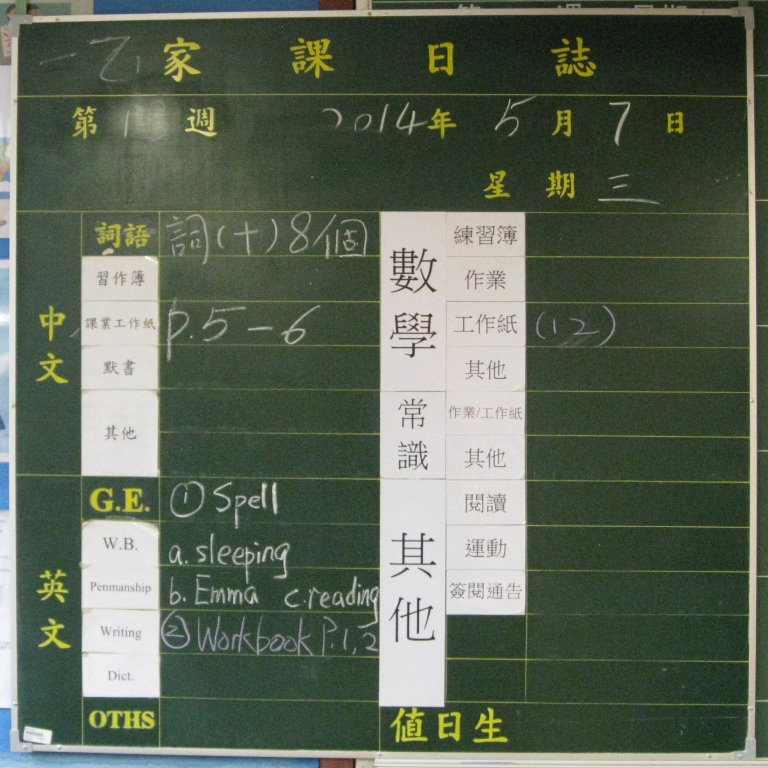 一乙 家課日誌
第 週 2014年 5月 7日
星期 三
中文
詞語 詞(十)8個
習作簿
課業工作紙 p.5-6
默書
其他
英文
G.E. ① Spell
W.B. a. sleeping
Penmanship b. Emma c. reading
Writing ② Workbook P.1, 2
Dict.
OTHS
數學
練習簿
作業
工作紙 (12)
其他
常識
作業/工作紙
其他
其他
閱讀
運動
簽閱通告
值日生